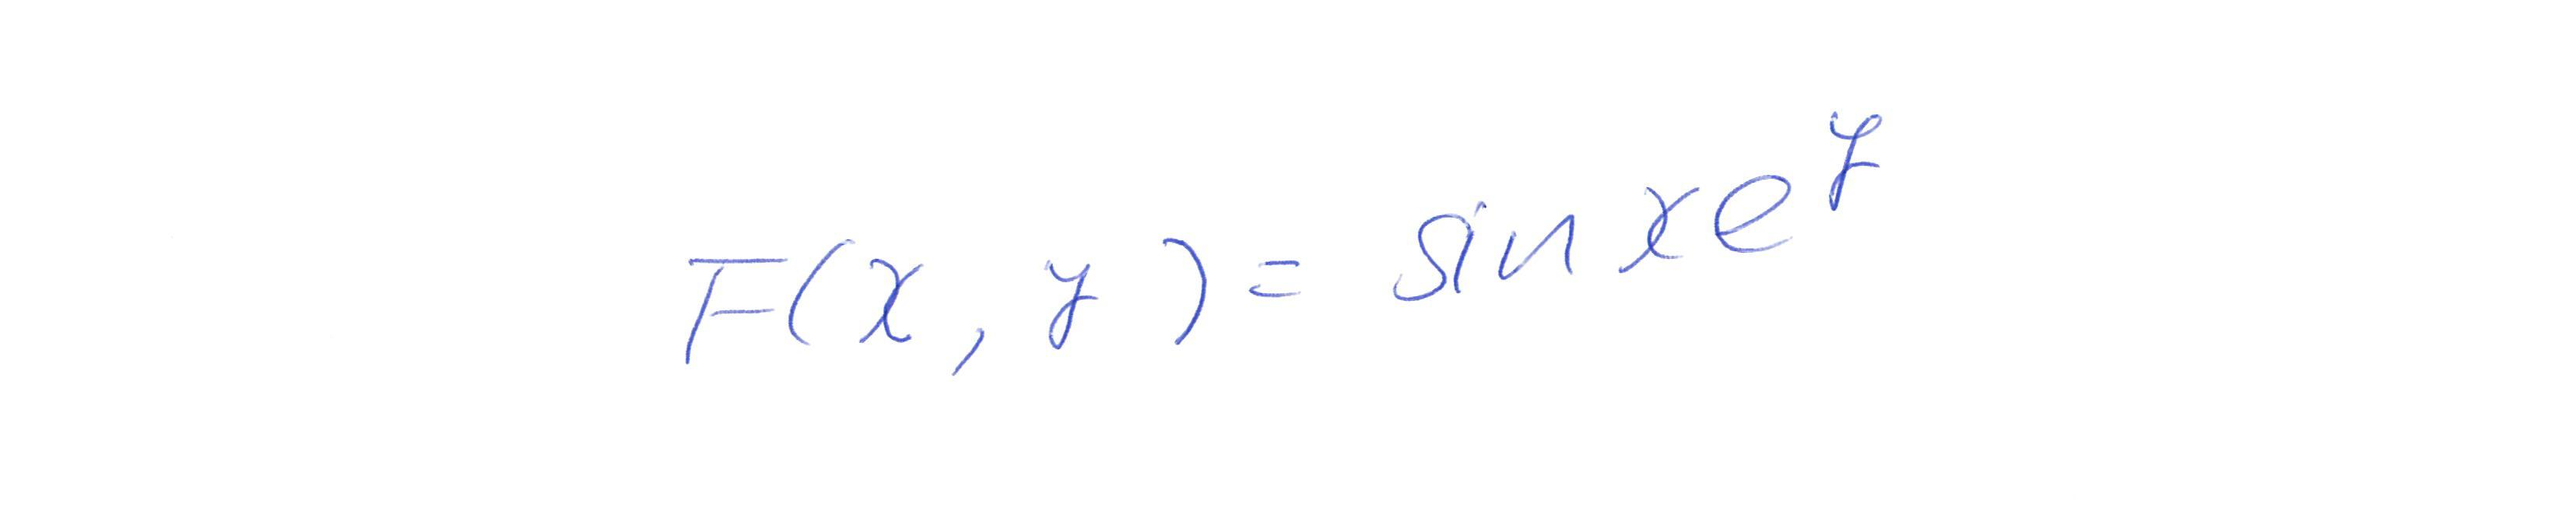 F(x, y) = sin xe^y